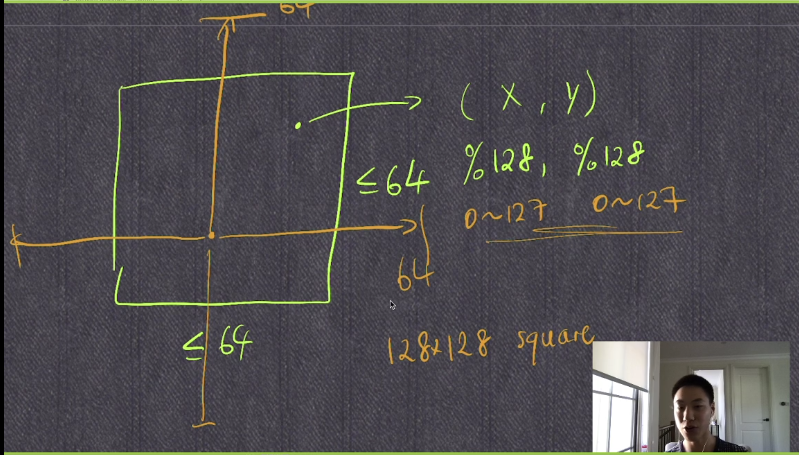 64
( X , Y )
%128, %128
≤64
0~127 0~127
64
≤ 64
128x128 square